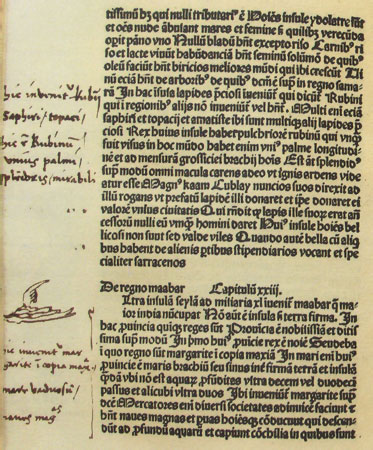 tissimū hȝ qui nulli tributari⁹ ē Hoīes insule ydolatre sūt
et oēs nude ābulant mares et femine s quilibȝ verecūda
opit pāno vno Nullū bladū hn̄t excepto riso Carnib⁹ ri
so et lacte viuūt habūdanciā hn̄t seminū solūmō de quib⁹
oleū faciūt hn̄t biricios meliores mūdi qui ibi crescūt Ui
nū eciā hn̄t de arborib⁹ de quib⁹ dcm̄ ē sup̄ in regno sama
rā In hac īsula lapides p̄ciosi īueniūt qui dicūt Rubini
qui ī regionib⁹ alijs nō inueniūt vel hn̄t. Multi eni eciā
saphiri et topacij et amatiste ibi sunt multiqȝ alij lapides p̄
ciosi Rex huius insule habet pulchriorē rubinū qui vnqȝ
fuit visus in hoc mūdo habet enim vni⁹ palme longitudi
nē et ad mensurā grossiciei brachij hoīs Est āt splendid⁹
sup modū omni macula carens adeo vt ignis ardens vide
atur esse Magn⁹ kaam Cublay nuncios suos direxit ad
illū rogans vt prefatū lapidē illi donaret et ipē donaret ei
valorē vnius ciuitatis Qui rn̄dit qȝ lepis ille suoȝ erat ān
cessorū nulli eū vnqȝ homini daret Hui⁹ insule hoīes bel
licosi non sunt sed valde viles Quando autē bella cū aliq
bus habent de alienis ptibus stipendiarios vocant et spe
cialiter sarracenos
De regno maabar Capitulū xxiij.
Ultra insulā seylā ad miliaria xl īuenit maabar q̄ ma
ior india nūcupat Nō aūt ē insula s terra firma. In
hac puincia quiqȝ reges sūt Prouīcia ē nobilissīa et ditis
sima sup modū In pmo hui⁹ puīcie rex ē noīe Seudeba
ī quo regno sūt margarite ī copia maxīa In mari eni hui⁹
puincie ē maris brachiū seu sinus inē firmā terrā et insulā
quādā vbi nō est aquaȝ pfūditas vltra decem vel duodecī
passus et alicubi vltra duos Ibi īueniūt margarite sup
dcē Mercatores eni diuersi societates adinuicē faciunt ē
hn̄t naues magnas et puas hoīesqȝ cōducunt qui descan
dūt ad pfundū aquarū et capiunt cōchilia in quibus sunt
hic inveniūt Rubi
Saphiri / topaci /
hic ē Rubinum
unius palmi
mirabili
hic inveniūt mar
gariti ī copia
mare vadosum
naves mag